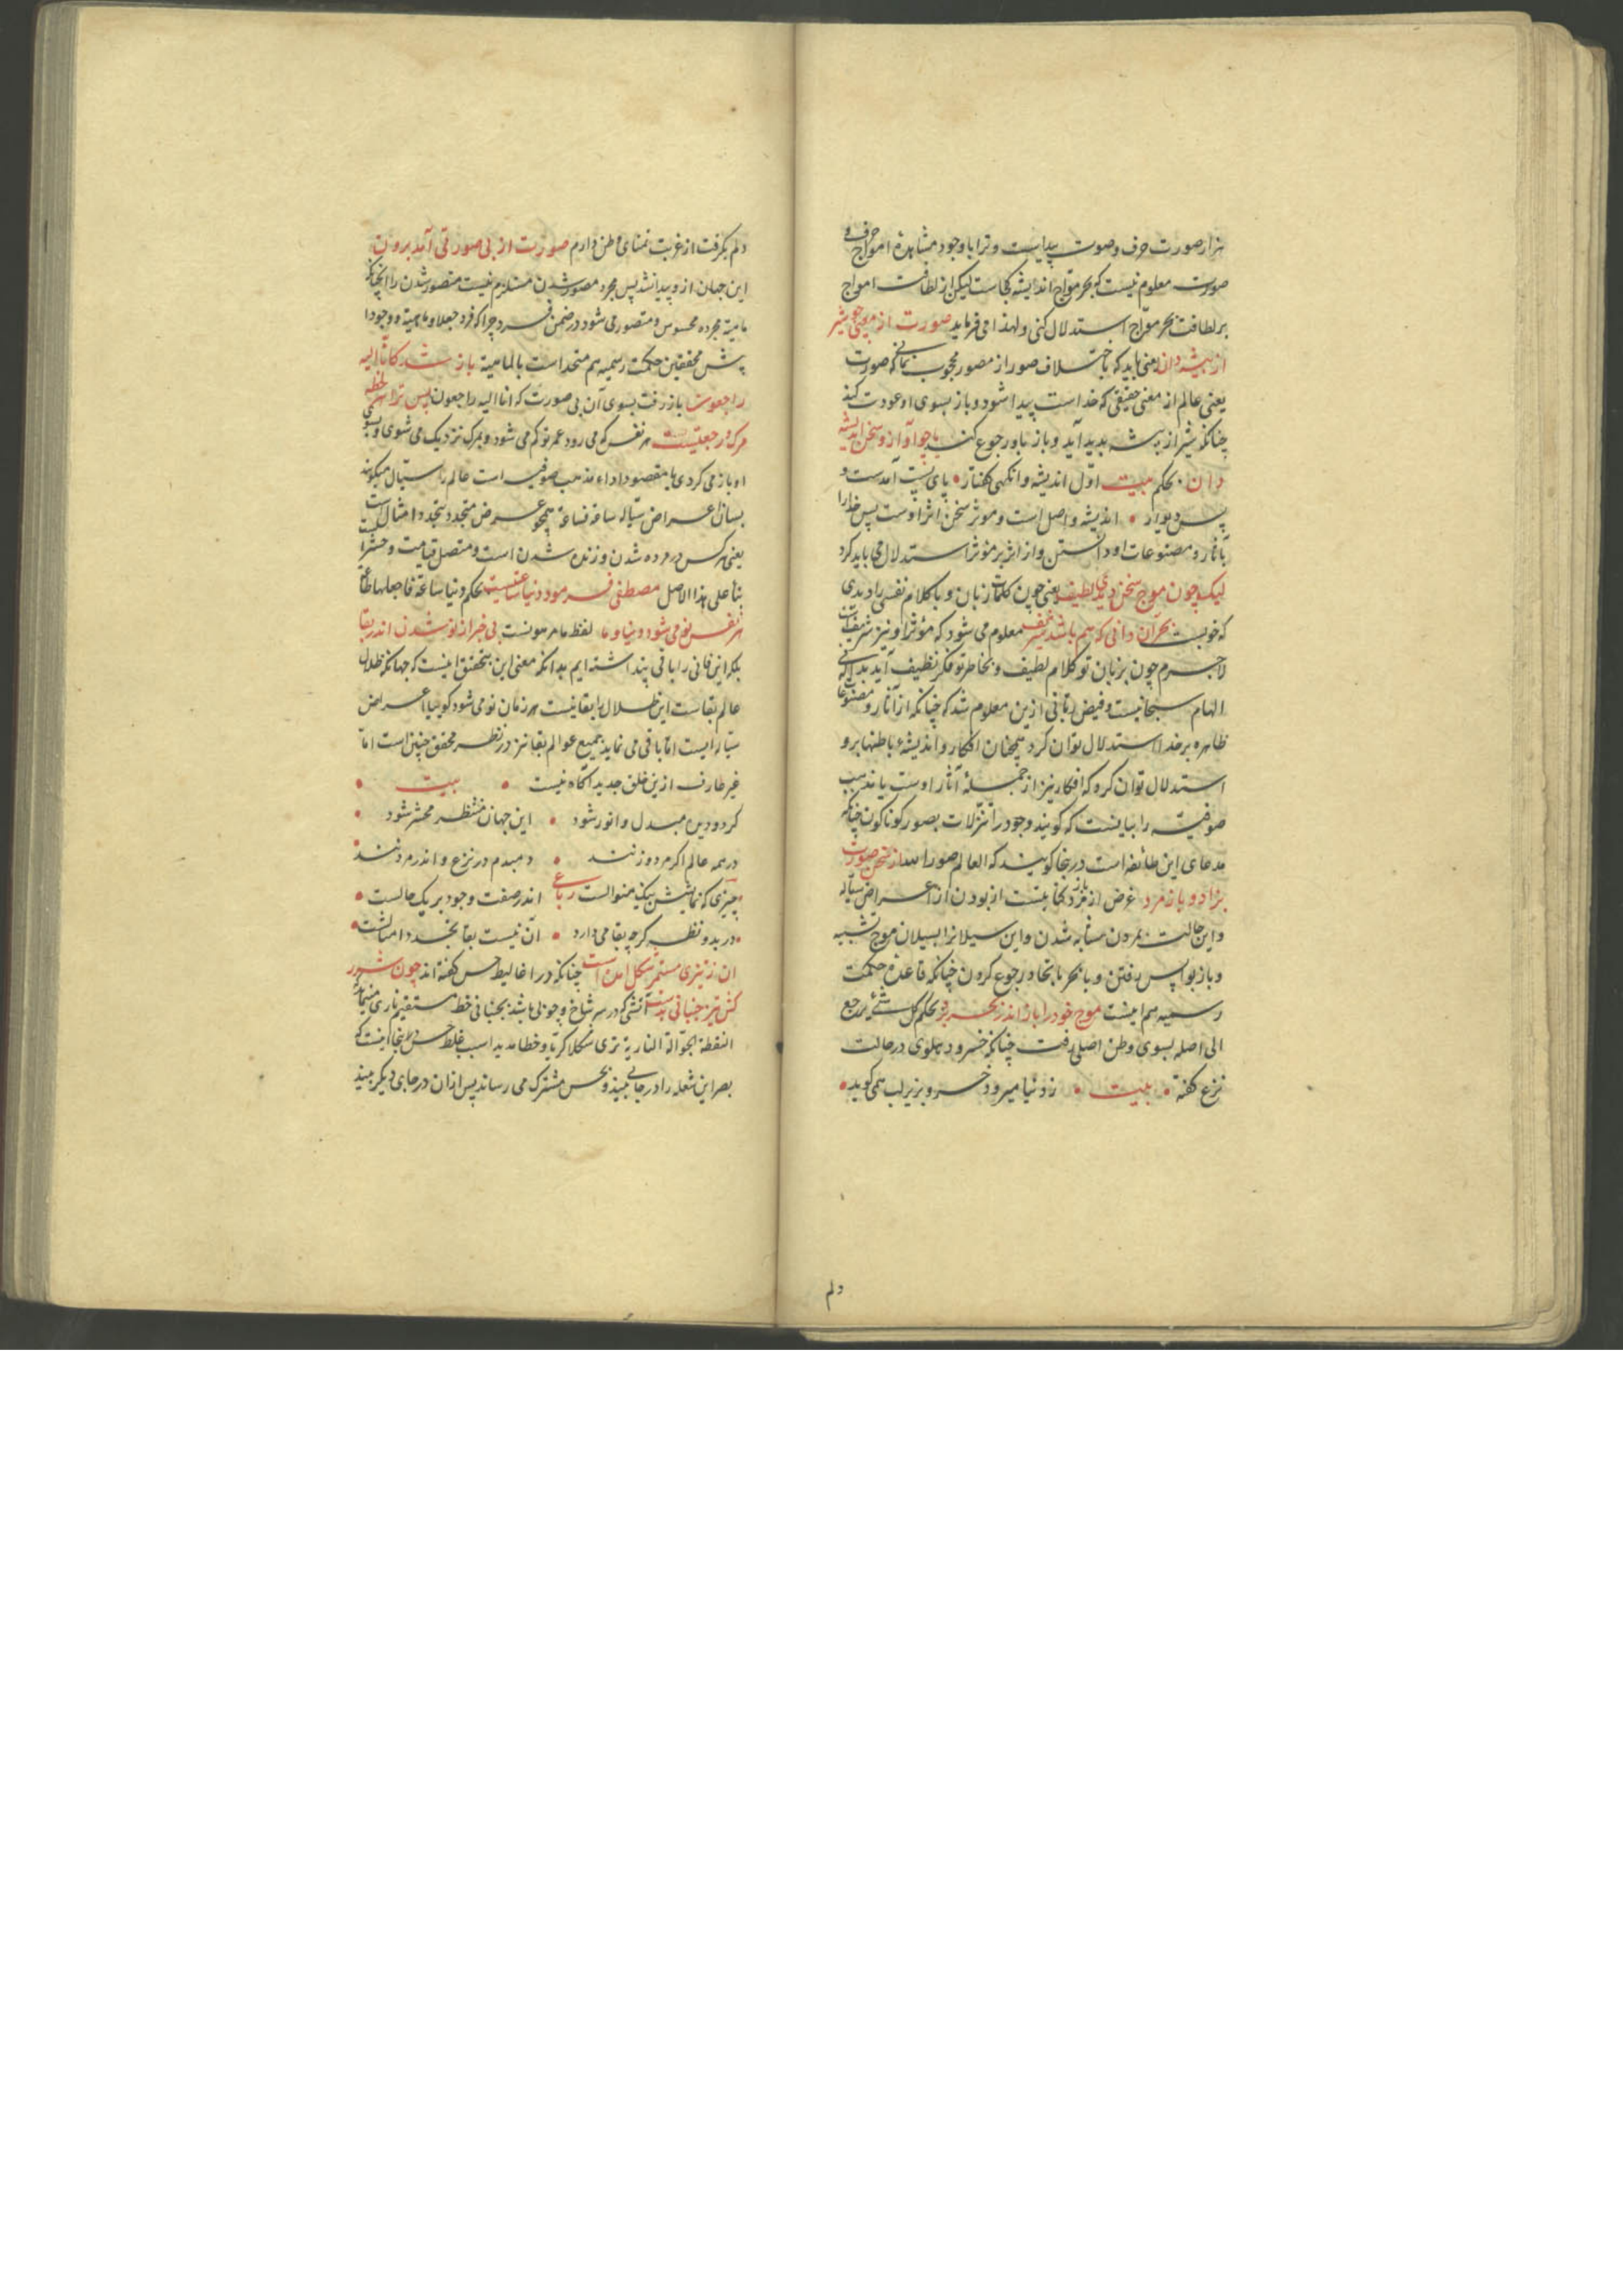 هزار صورت حرف و صوت پیداست و ترا با وجود مشاهدهٔ امواج حرف و
صورت معلوم نیست که بحر موّاج اندیشه کجاست لیکن از لطافت امواج
بر لطافت بحر موّاج استدلال کنی و لهذا می فرماید صورت از معنی چو شیر
از بیشه دان یعنی باید که باختلاف صور از مصور محجوب نمانی که صورت
یعنی عالم از معنی حقیقی که خداست پیدا شود و باز بسوی او عودت کند
چنانکه شیر از بیشه پدید آید و باز باو رجوع کند یا چو آواز و سخن ز اندیشه
دان بحکم بیت اوّل اندیشه وانکهی کفتار • پای بست آمدست و
پس دیوار • اندیشه و اصل است و موثر سخن اثر اوست پس خدا را
بآثار و مصنوعات او دانستن و از اثر بر مؤثر استدلال می باید کرد
لیک چون موج سخن دیدی لطیف یعنی چون کلمات زبان و با کلام نفسی را دیدی
که خوبست بحر آن دانی که هم باشد شریف معلوم می شود که مؤثر او نیز شریفست
لاجرم چون بر زبان تو کلام لطیف و بخاطر تو فکر نظیف آید بدانی که
الهام سبحانیست و فیض ربّانی ازین معلوم شد که چنانکه از آثار و مصنوعات
ظاهره بر خدا استدلال توان کرد همچنان افکار و اندیشهٔ باطنها برو
استدلال توان کرد که افکار نیز از جملهٔ آثار اوست یا مذهب
صوفیه را بیانست که کویند وجود را تنزّلات بصور کوناکونست چنانکه
مدعای این طائفه است در ینجا کویند که العالم صور الله از سخن صورت
بزاد و باز مرد غرض از مرد کنایتست از بودن از اعراض سیّاله
و این حالت بمردن مشابه شدن و این سیلانرا بسیلان موج تشبیه
و باز بواپس رفتن و با بحر باتحاد رجوع کردن چنانکه قاعدهٔ حکمت
رسمیه هم اینست موج خود را باز اندر بحر برد بحکم کل شئ یرجع
الی اصله بسوی وطن اصلی رفت چنانکه خسرو دهلوی در حالت
نزع کفته • بیت • ز دنیا میرود خسرو بزیر لب همی کوید •
دلم
دلم بکرفت از غربت تمنای وطن دارم صورت از بی صورتی آمد برون
این جهان ازو پیدا شد پس مجرد مصور شدن مستلزم نیست متصور شدن را چنانکه
ماهیة مجرده محسوس و متصور می شود در ضمن فرد چرا که فرد جعلا و ماهیة و وجودا
پیش محققین حکمت رسمیه هم متحد است بالماهیة باز شد کانّا الیه
راجعون باز رفت بسوی آن بی صورت که انا الیه راجعون پس ترا هر لحظه
مرک و رجعتیست هر نفس که می رود عمر تو کم می شود و بمرک نزدیک می شوی و بسوی
او باز می کردی یا مقصود اداء مذهب صوفیه است عالم را سیّال میکویند
بسان اعراض سیّاله ساعة فساعة همچو عرض متجدد بتجدد امثال است
یعنی هر کس در مرده شدن و زنده شدن است و متصل قیامت و حشر است
بنأ علی هذا الاصل مصطفی فرمود دنیا ساعتیست بحکم دنیا ساعة فاجعلها طاعة
هر نفس نو می شود دنیا و ما لفظ ما مرهونست بی خبر از نو شدن اندر بقا
بلکه این فانی را باقی پنداشته ایم بدانکه معنی این بتحقیق اینست که جهانکه ظلال
عالم بقاست این ظلال را بقا نیست هر زمان نو می شود کوییا اعراض
سیّاله ایست امّا باقی می نماید جمیع عوالم بقا نیز در نظر محقق چنین است امّا
غیر عارف ازین خلق جدید آکاه نیست • بیت •
کردد دین مبدل و انور شود • این جهان منتظر محشر شود •
در همه عالم اکر مرد و زنند • دمبدم در نزع و اندر مردنند •
چیزی که نمایش بیک منوالست رباعی اندر صفت وجود بر یک حالست •
• در بدو نظر کرچه بقا می دارد • آن نیست بقا تجدد امثالست •
آن ز تیزی مستمر شکل آمده است چنانکه در اغالیط حس کفته اند چون شرر
کش تیز جنبانی بدست آتشی که در سر شاخ و چوبی باشد بجنبانی خط مستقیم ناری مینماید
النقطة الجوّالة الناریة تری شکلا کریّا و خطا مدیدا سبب غلط حس در ینجا اینست که
بصر این شعله را در جائی بیند و بحس مشترک می رساند پس از ان در جای دیکر بیند